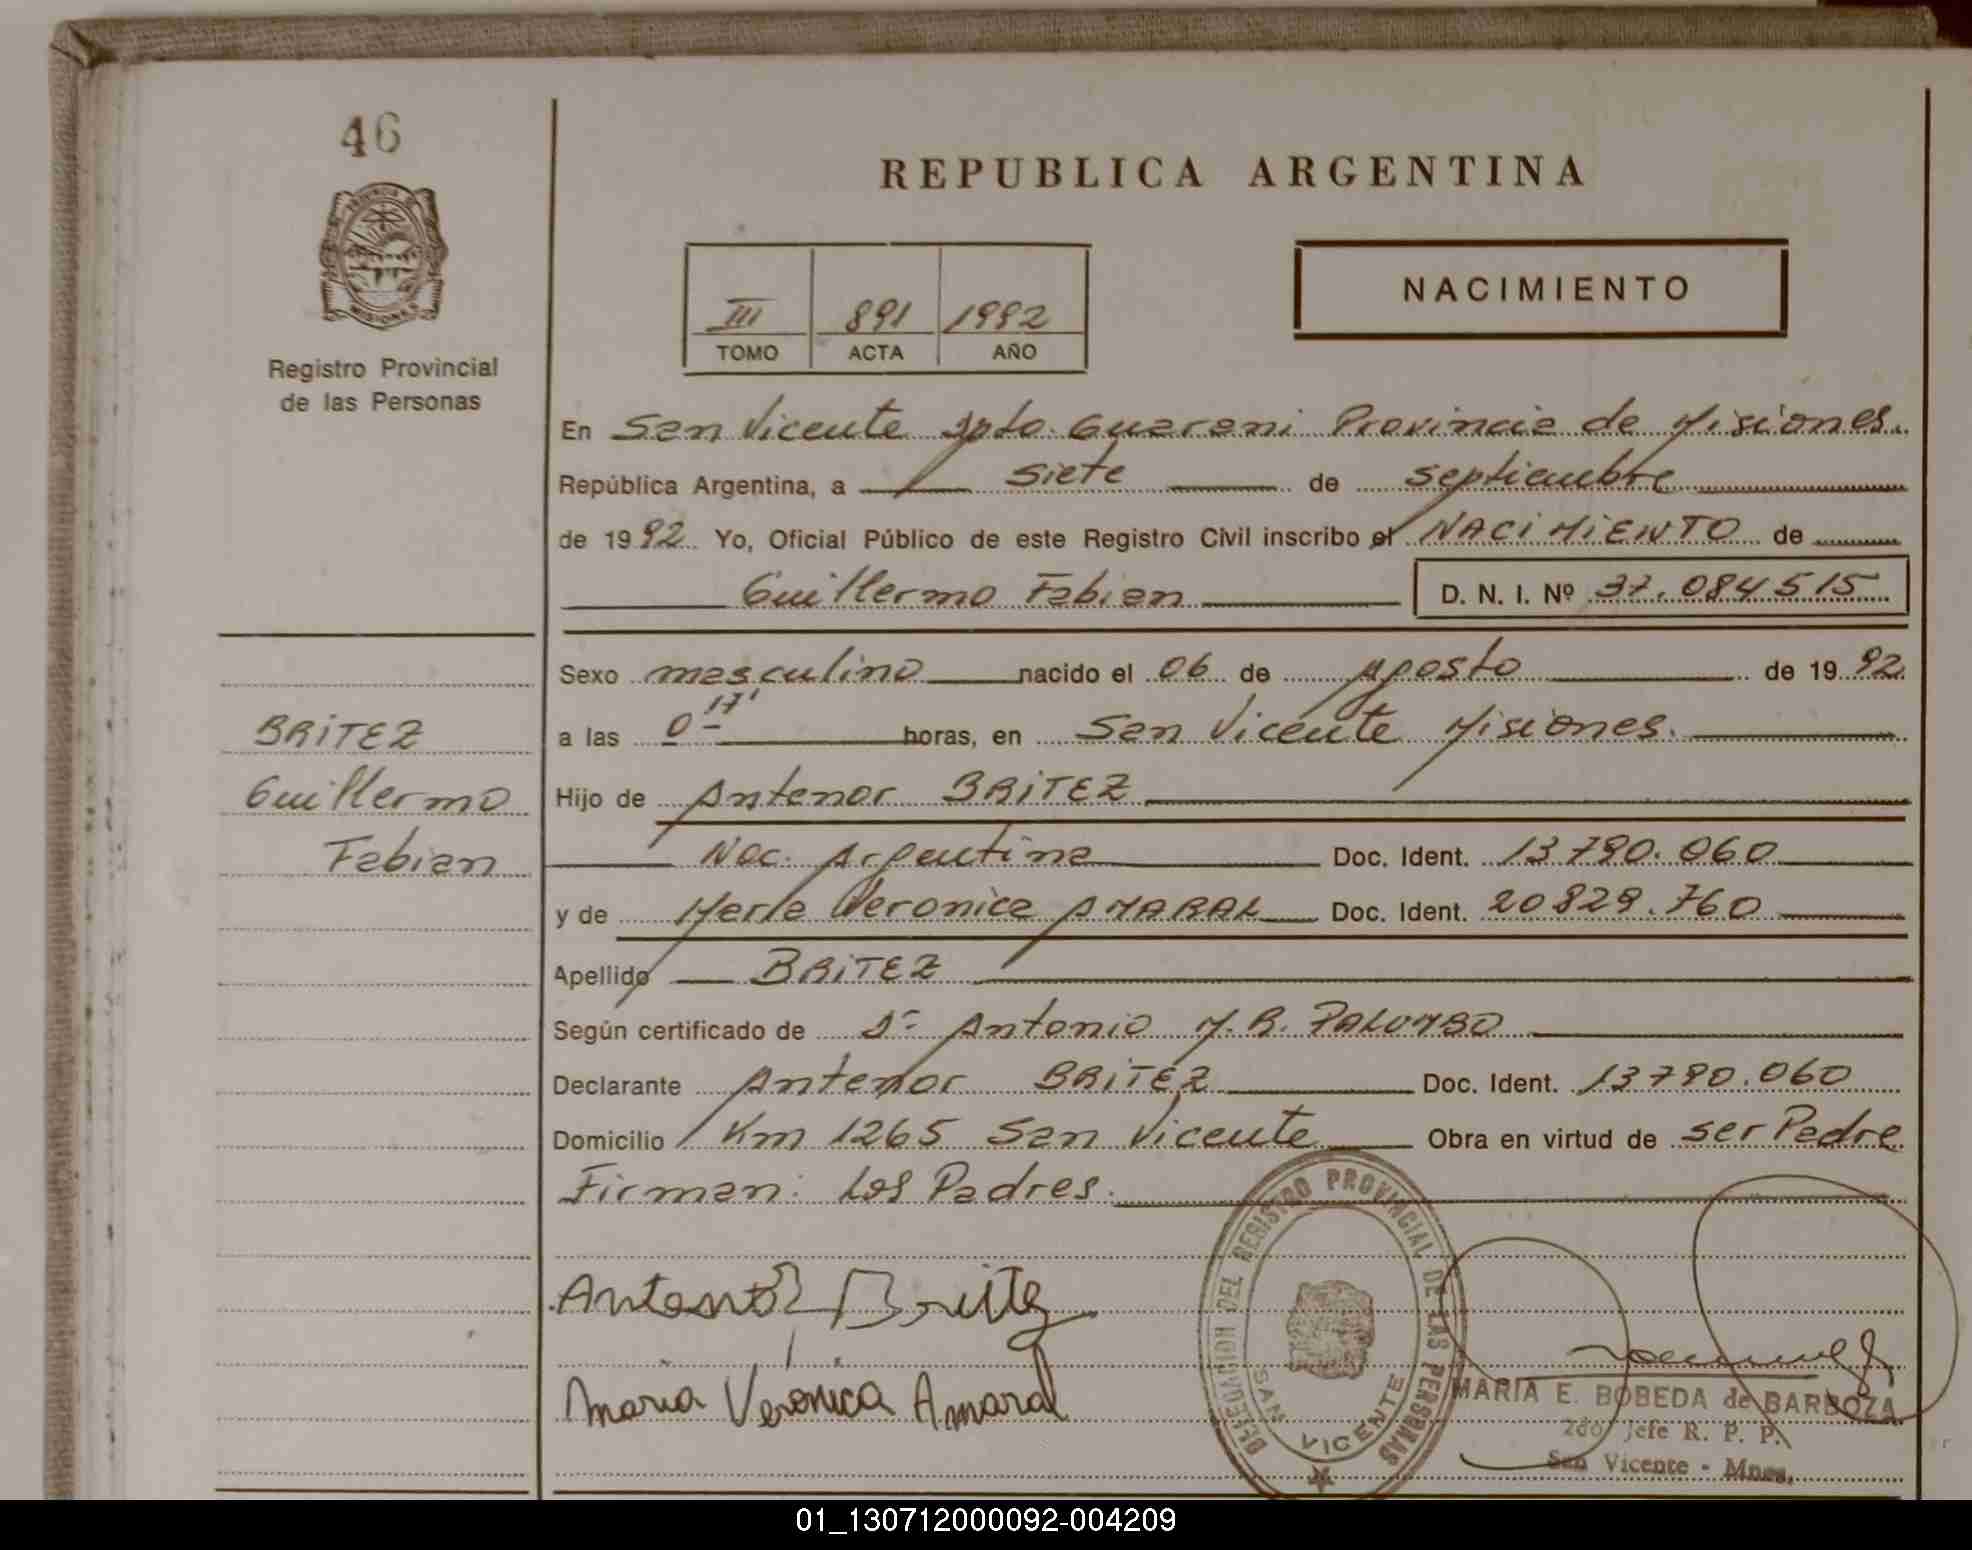 46
REPUBLICA ARGENTINA
PROVINCIA DE
MISIONES
Registro Provincial
de las Personas
III 891 1992
TOMO ACTA AÑO
NACIMIENTO
En San Vicente Dpto. Guarani Provincia de Misiones.
República Argentina, a siete de septiembre
de 1992 Yo, Oficial Público de este Registro Civil inscribo el NACIMIENTO de
Guillermo Fabian D. N. I. Nº 37.084515
Sexo masculino nacido el 06 de Agosto de 1992
a las 0 17' horas, en San Vicente Misiones.
BRITEZ
Guillermo
Fabian
Hijo de Antenor BRITEZ
Nac. Argentina Doc. Ident. 13790.060
y de Maria Veronica AMARAL Doc. Ident. 20829.760
Apellido BRITEZ
Según certificado de Dr Antonio M.R. PALOMBO
Declarante Antenor BRITEZ Doc. Ident. 13790.060
Domicilio Km 1265 San Vicente Obra en virtud de ser Padre
Firman: Los Padres.
Britez
Maria Verónica Amaral
DELEGACION DEL REGISTRO PROVINCIAL DE LAS PERSONAS
SAN VICENTE
MARIA E. BOBEDA de BARBOZA
2do Jefe R. P. P.
San Vicente - Mnes.
01_130712000092-004209